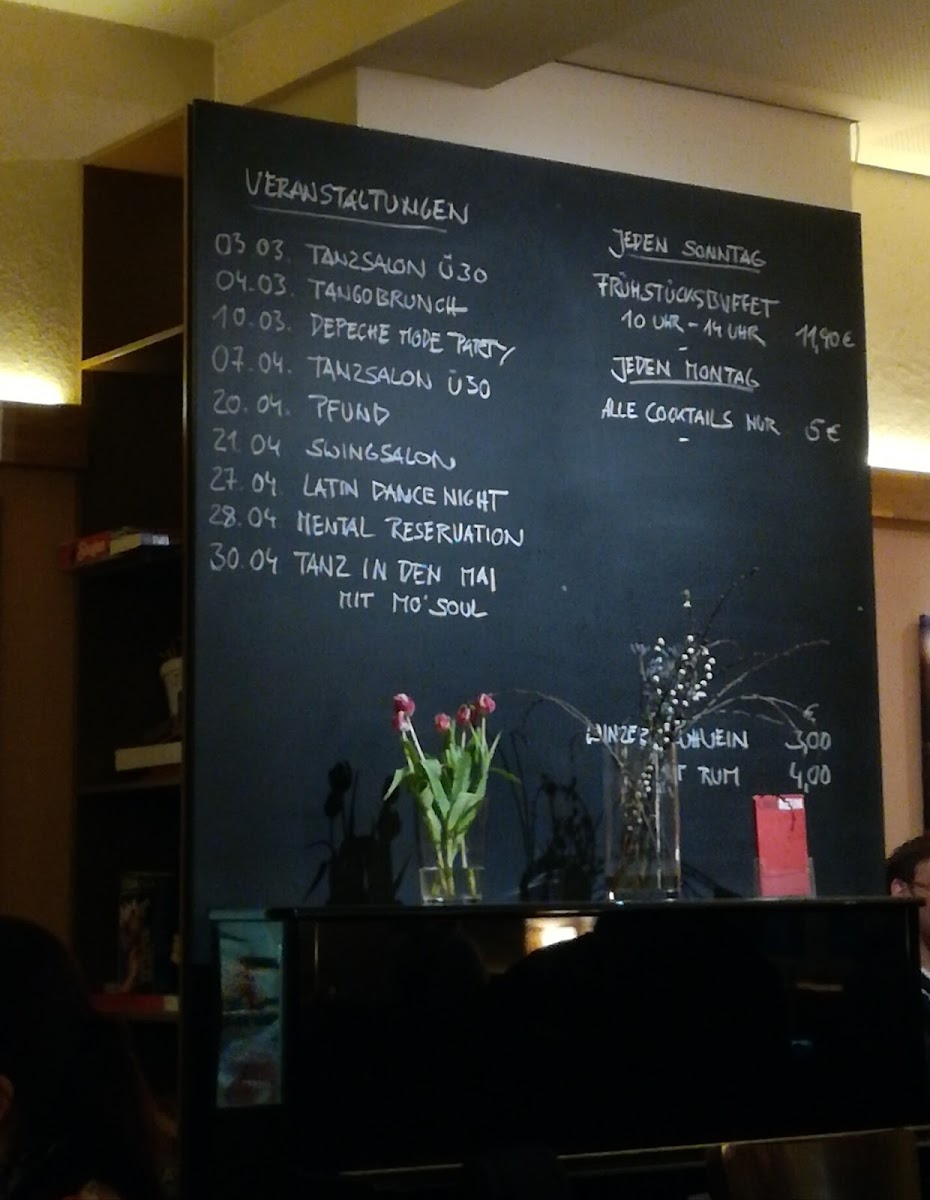 VERANSTALTUNGEN
03.03. TANZSALON Ü30
04.03. TANGOBRUNCH
10.03. DEPECHE MODE PARTY
07.04. TANZSALON Ü30
20.04. PFUND
21.04 SWINGSALON
27.04. LATIN DANCE NIGHT
28.04 MENTAL RESERVATION
30.04 TANZ IN DEN MAI
MIT MO'SOUL
JEDEN SONNTAG
FRÜHSTÜCKSBUFFET
10 UHR - 14 UHR 11,90 €
JEDEN MONTAG
ALLE COCKTAILS NUR 5 €
€
3,00
RUM 4,00